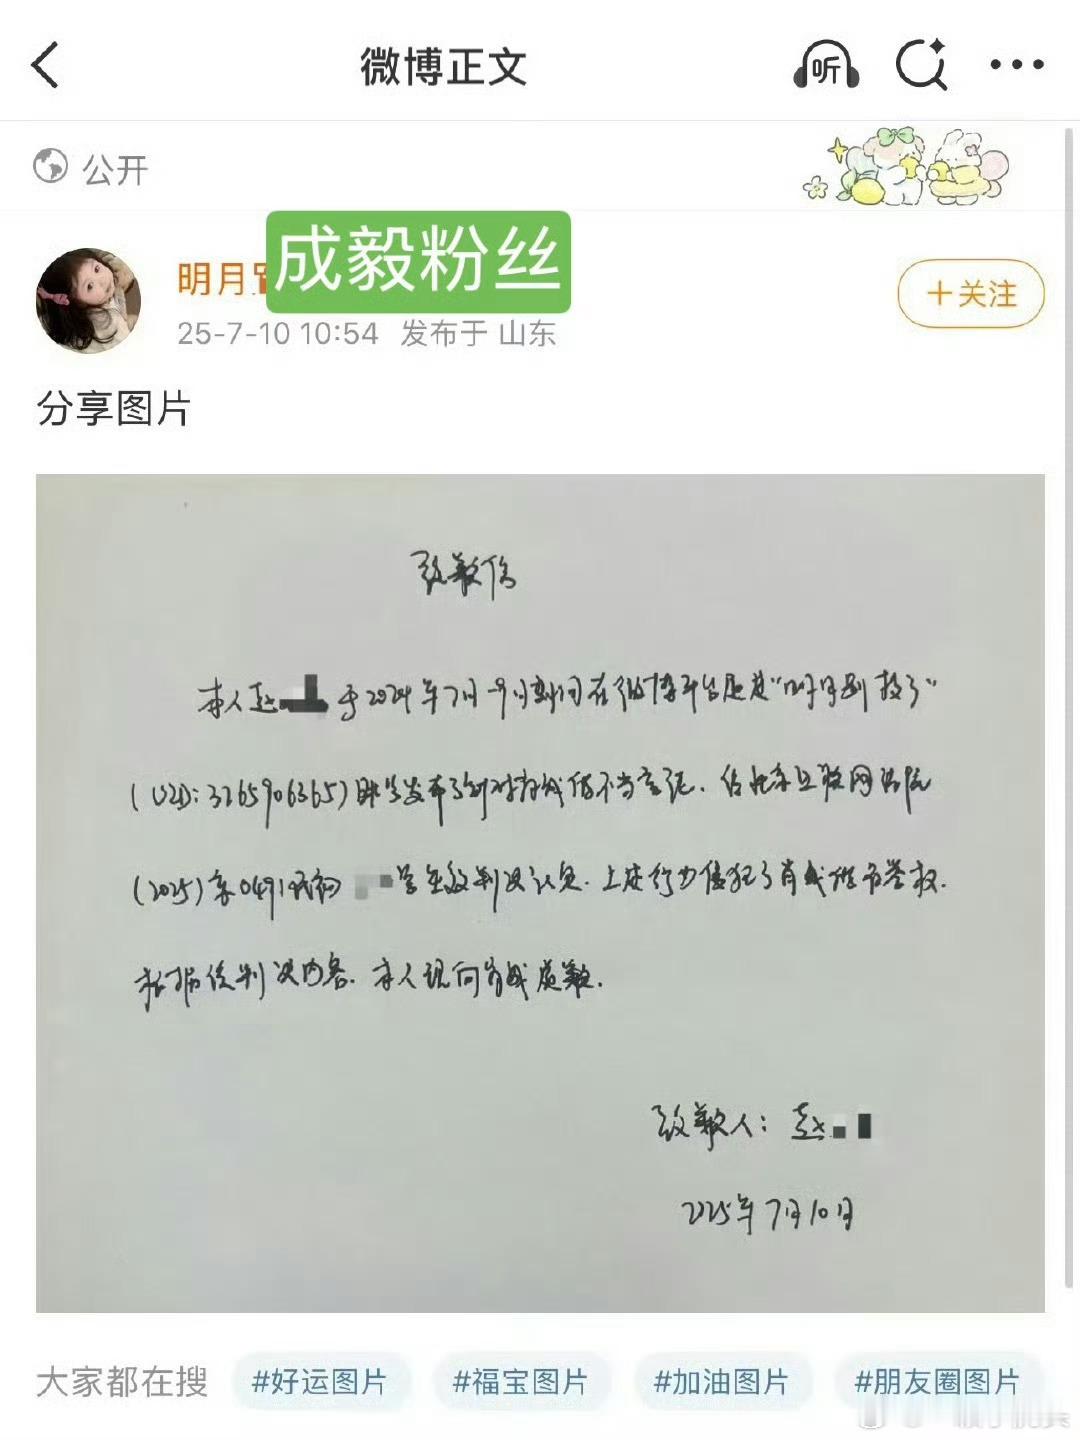 微博正文
听
公开
成毅粉丝
明月
+关注
25-7-10 10:54 发布于 山东
分享图片
致歉信
本人赵 于2024年7月-9月期间在微博平台通过"明月别 了"
(UID:3265906365)账号发布了针对肖战的不当言论,经北京互联网法院
(2025)京0491民初 号生效判决认定,上述行为侵犯了肖战的名誉权.
根据该判决内容,本人现向肖战致歉.
致歉人:赵
2025年7月10日
大家都在搜 #好运图片 #福宝图片 #加油图片 #朋友圈图片